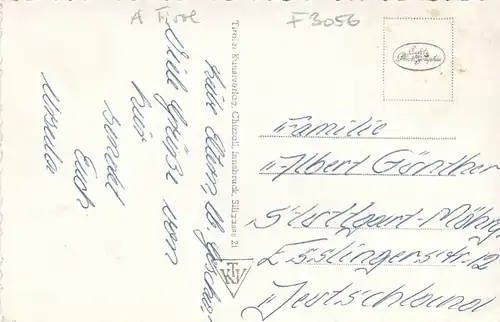 A Tirol
F3056
Echte Photographie
Liebe Eltern, lb.
Viele Grüße von
hier
sendet
Euch
Ursula
Tiroler Kunstverlag, Chizzali, Innsbruck, Sillgasse 21
TKV
Familie
Albert Günther
Stuttgart-Möhr
Esslingerstr. 12
Deutschland